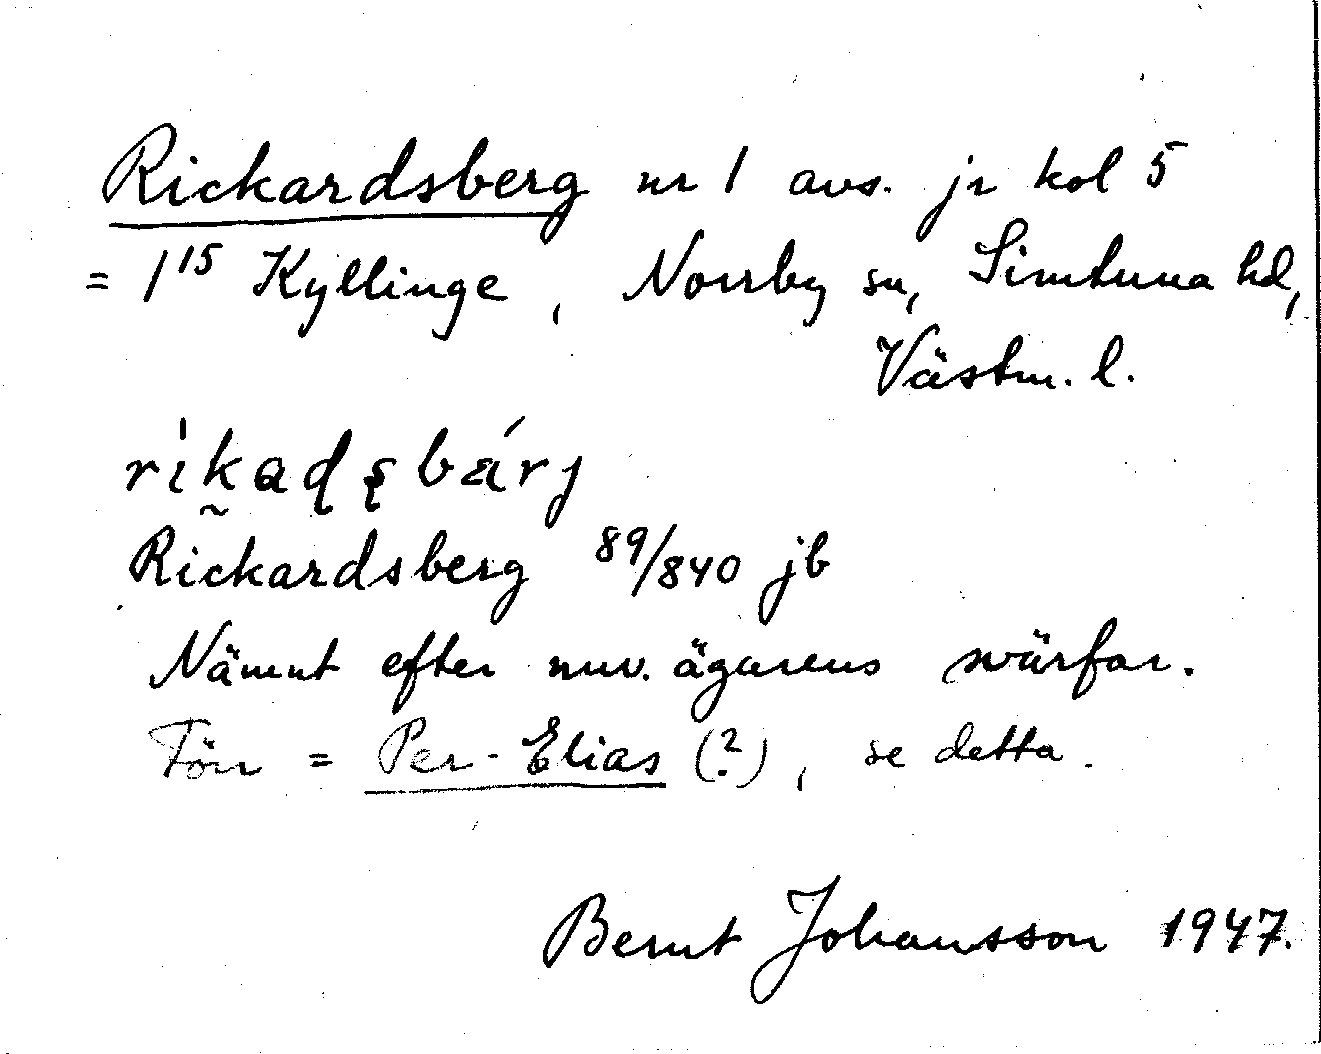 Rickardsberg nr 1 avs. jr kol 5
= 1¹⁵ Kyllinge, Norrby sn, Simtuna hd,
Västm. l.
Rickardsberg 89/840 jb
Nämnt efter nuv. ägarens svärfar.
Förr = Per-Elias (?), se detta.
Bernt Johansson 1947.